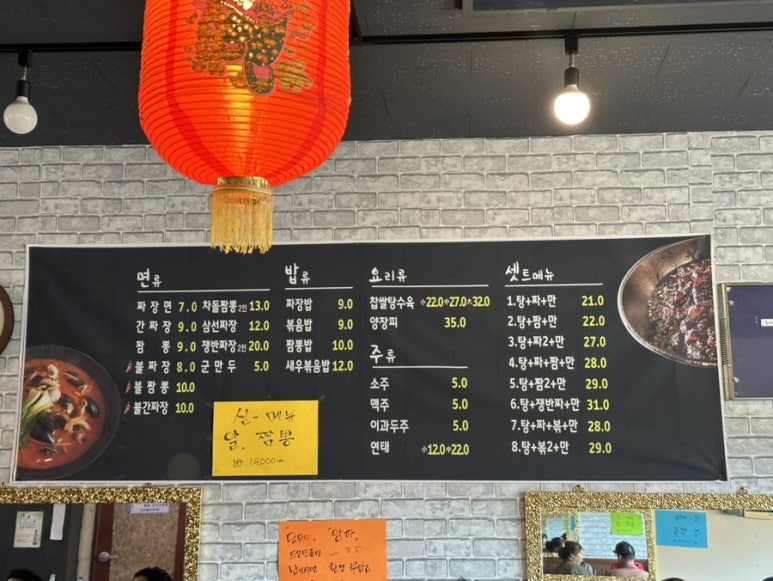 면류
짜장면 7.0
간짜장 9.0
짬뽕 9.0
불짜장 8.0
불짬뽕 10.0
불간짜장 10.0
차돌짬뽕2인 13.0
삼선짜장 12.0
쟁반짜장2인 20.0
군만두 5.0
밥류
짜장밥 9.0
볶음밥 9.0
짬뽕밥 10.0
새우볶음밥 12.0
요리류
찹쌀탕수육 小22.0 中27.0 大32.0
양장피 35.0
주류
소주 5.0
맥주 5.0
이과두주 5.0
연태 小12.0 中22.0
셋트메뉴
1.탕+짜+만 21.0
2.탕+짬+만 22.0
3.탕+짜2+만 27.0
4.탕+짜+짬+만 28.0
5.탕+짬2+만 29.0
6.탕+쟁반짜+만 31.0
7.탕+짜+볶+만 28.0
8.탕+볶2+만 29.0
신-메뉴
알.짬뽕
14000
"양파,